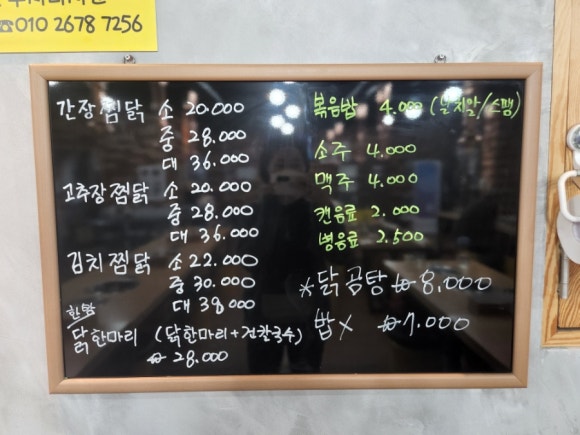 ☎010 2678 7256
간장찜닭 소 20.000
중 28.000
대 36.000
고추장찜닭 소 20.000
중 28.000
대 36.000
김치찜닭 소 22.000
중 30.000
대 38.000
한방
닭한마리 (닭한마리+건칼국수)
₩ 28.000
볶음밥 4.000 (날치알/스팸)
소주 4.000
맥주 4.000
캔음료 2.000
병음료 2.500
*닭곰탕 ₩ 8.000
밥 X ₩ 7.000